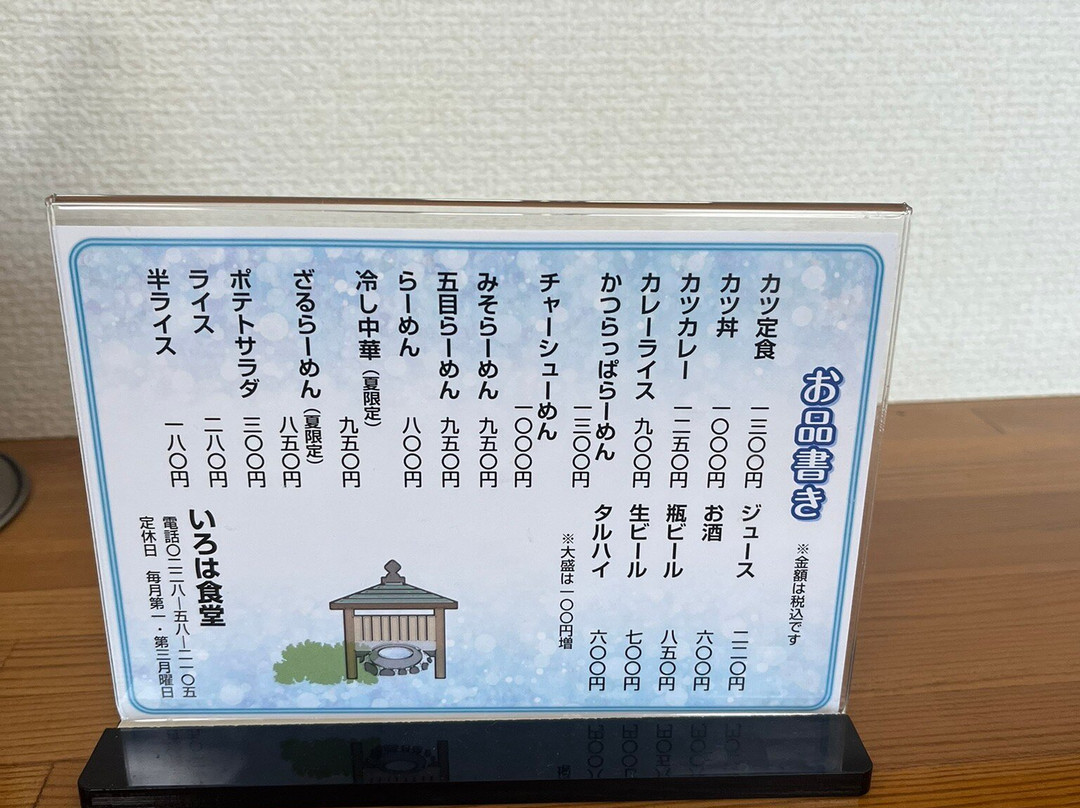 お品書き
※金額は税込です
カツ定食 一三〇〇円
カツ丼 一〇〇〇円
カツカレー 一二五〇円
カレーライス 九〇〇円
かつらっぱらーめん 一三〇〇円
チャーシューめん 一〇〇〇円
みそらーめん 九五〇円
五目らーめん 九五〇円
らーめん 八〇〇円
冷し中華(夏限定) 九五〇円
ざるらーめん(夏限定) 八五〇円
ポテトサラダ 三〇〇円
ライス 二八〇円
半ライス 一八〇円
ジュース 二二〇円
お酒 六〇〇円
瓶ビール 八五〇円
生ビール 七〇〇円
タルハイ 六〇〇円
※大盛は一〇〇円増
いろは食堂
電話〇二二八ー五八ー二一〇五
定休日 毎月第一・第三月曜日